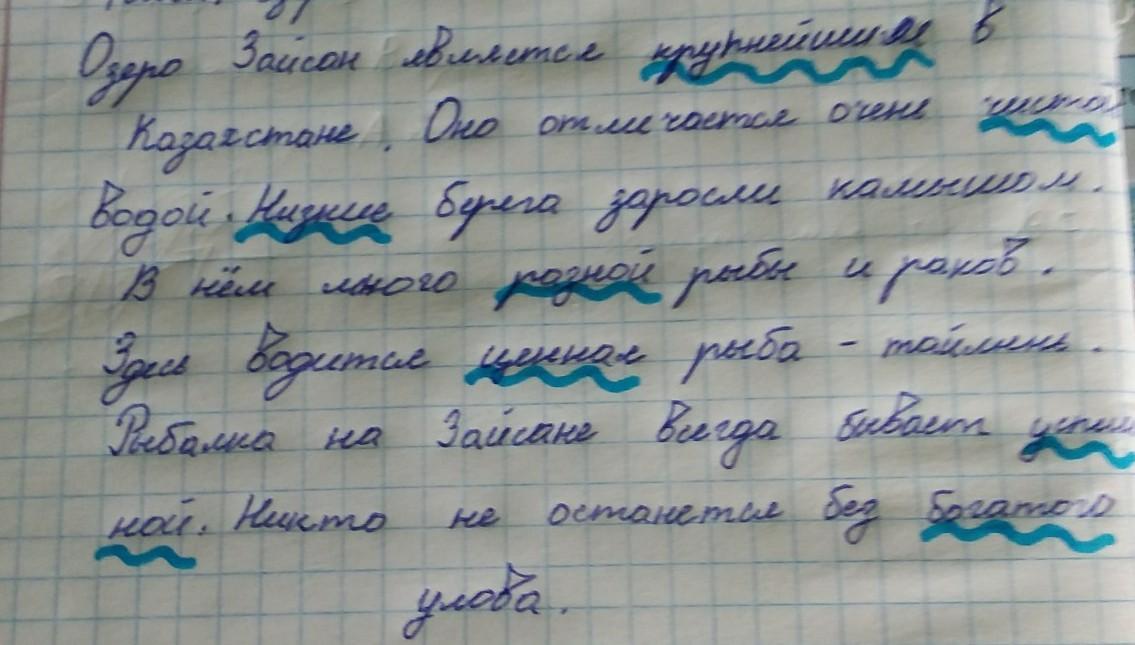 Озеро Зайсан является крупнейшим в
Казахстане. Оно отличается очень чистой
водой. Низкие берега заросли камышом.
В нём много разной рыбы и раков.
Здесь водится ценная рыба - таймень.
Рыбалка на Зайсане всегда бывает успеш
ной. Никто не останется без богатого
улова.